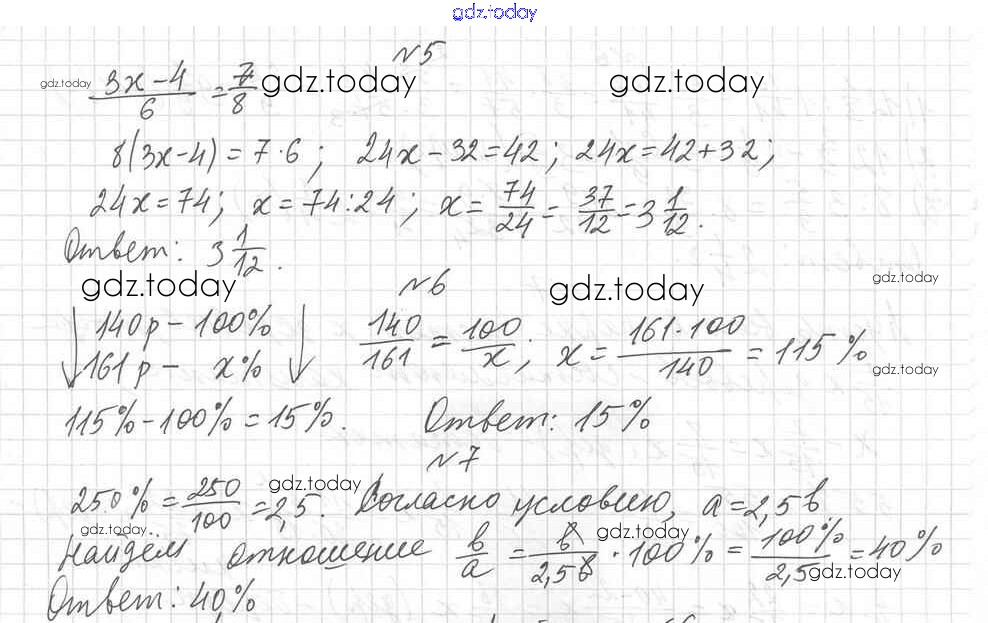 gdz.today
№5
gdz.today (3x-4)/6 = 7/8 gdz.today gdz.today
8(3x-4) = 7·6; 24x-32=42; 24x=42+32;
24x=74; x=74:24; x= 74/24 = 37/12 = 3 1/12.
Ответ: 3 1/12.
gdz.today №6 gdz.today gdz.today
↓ 140 р - 100% ↓ 140/161 = 100/x; x = 161·100/140 = 115%
161 р - x% gdz.today
115%-100%=15%. Ответ: 15%
№7
250% = 250/100 = 2,5. gdz.today Согласно условию, a=2,5b.
gdz.today gdz.today
Найдём отношение b/a = b/2,5b · 100% = 100%/2,5 = 40%
gdz.today
Ответ: 40%